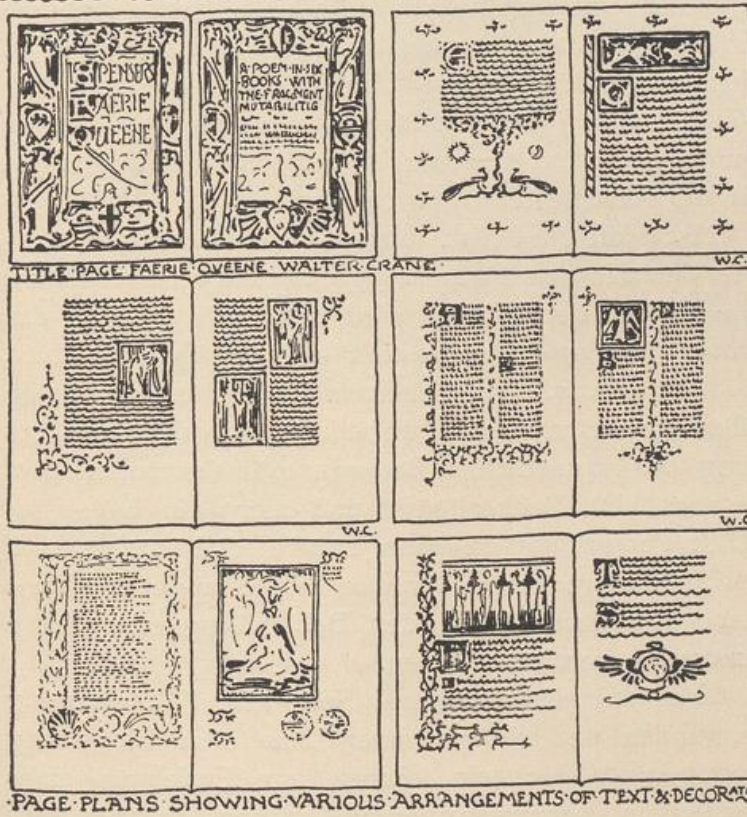 SPENSERS
FAERIE
QUEENE
A·POEM·IN·SIX
BOOKS·WITH
THE·FRAGMENT
MUTABILITIE
TITLE·PAGE·FAERIE·QVEENE·WALTER·CRANE·
W.C.
W.C.
W.C.
·PAGE·PLANS·SHOWING·VARIOUS·ARRANGEMENTS·OF·TEXT·&·DECORATN